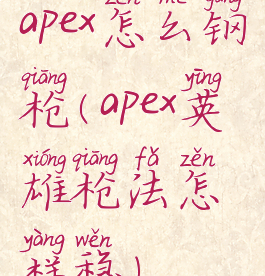 zěn me gāng
apex怎么钢
qiāng yīng
枪(apex英
xióng qiāng fǎ zěn
雄枪法怎
yàng wěn
样稳)